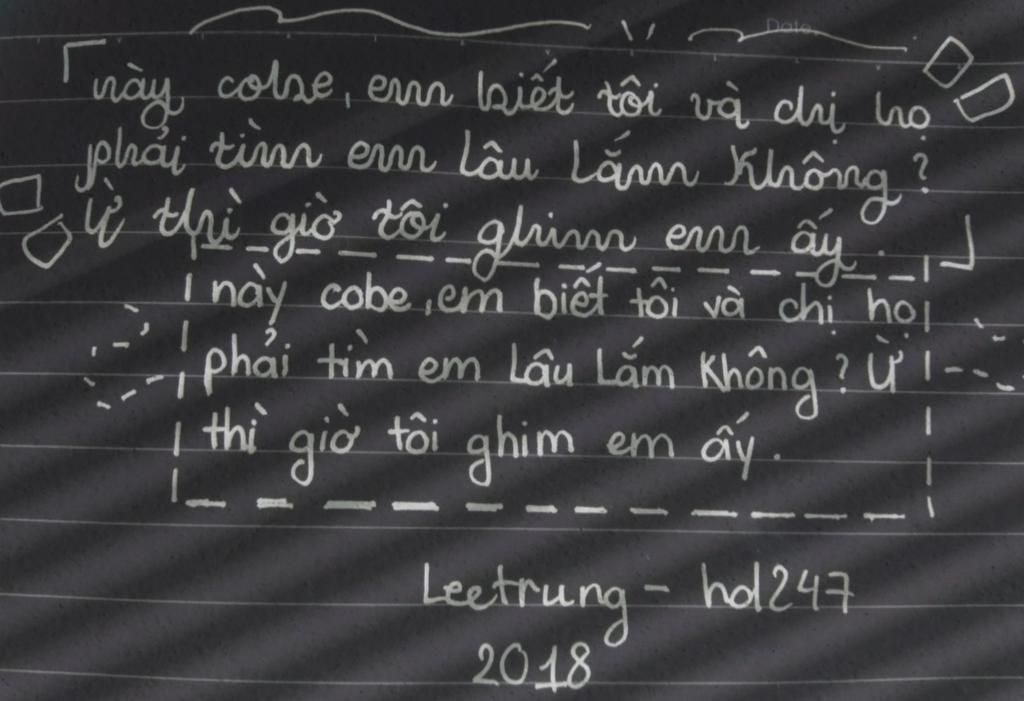 Date.
này cobe, em biết tôi và chị họ
phải tìm em Lâu Lắm Không?
Ừ thì giờ tôi ghim em ấy.
này cobe, em biết tôi và chị họ
phải tìm em Lâu Lắm Không? Ừ
thì giờ tôi ghim em ấy.
Leetrung - hd247
2018